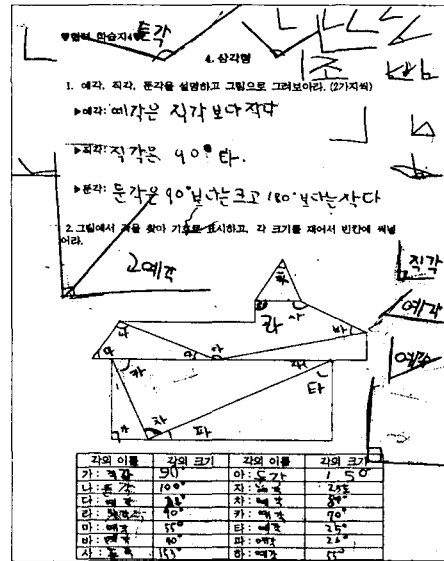 둔각
4. 삼각형
1조
1. 예각, 직각, 둔각을 설명하고 그림으로 그려보아라. (2가지씩)
▶예각: 예각은 직각보다 작다
▶직각: 직각은 90° 다.
▶둔각: 둔각은 90°보다는 크고 180°보다는 작다
2. 그림에서 각을 찾아 기호로 표시하고, 각 크기를 재어서 빈칸에 써넣어라.
예각
직각
예각
예각
하
라
사
나
바
마
아
카
타
차
파
가
각의 이름 각의 크기 각의 이름 각의 크기
가: 직각 90° 아: 둔각
나: 둔각 100° 자:
다: 예각 차: 예각
라: 90° 카: 예각 70°
마: 예각 55° 타: 예각 25°
바: 예각 40° 파: 예각
사: 둔각 153° 하: 예각 55°